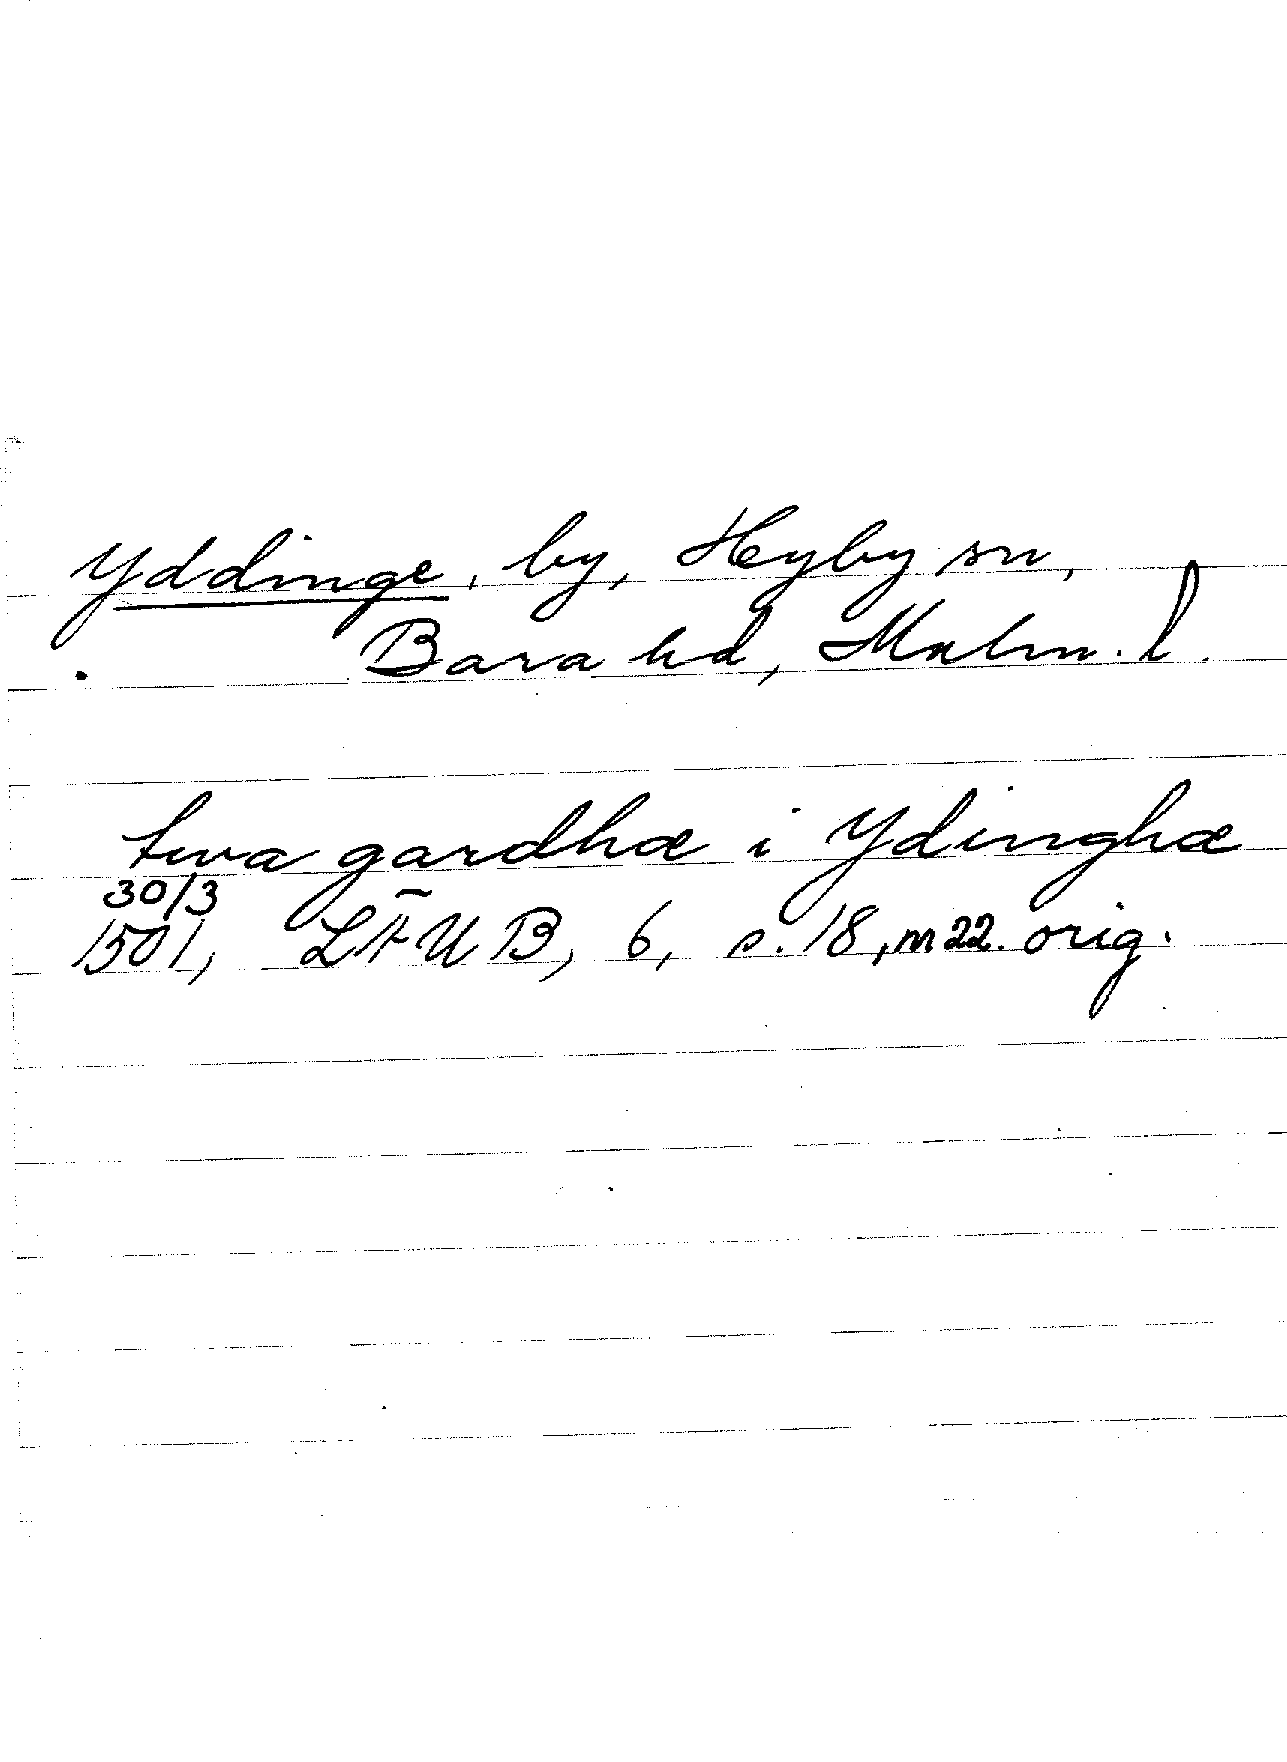 Yddinge, by, Hyby sn,
Bara hd, Malm. l.
twa gardhæ i Ydinghæ
30/3
1501, LÄUB, 6, s. 18, m 22. orig.